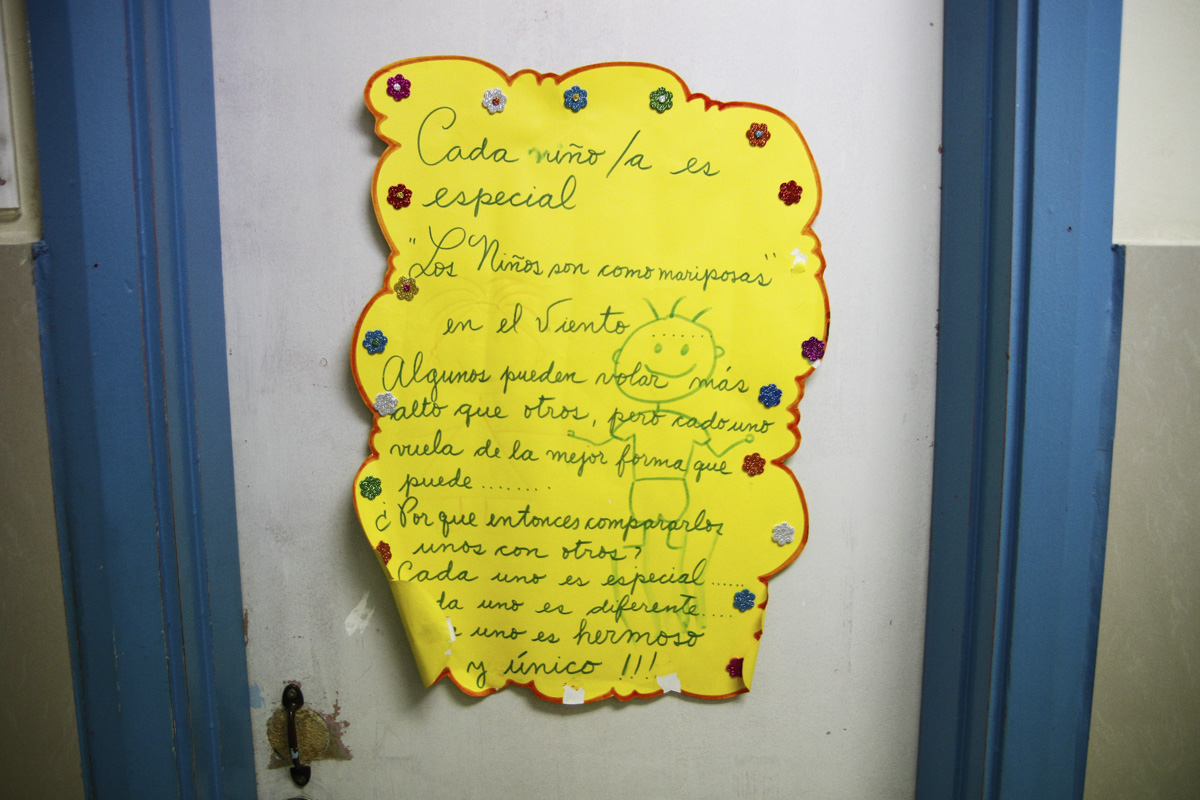 Cada niño/a es
especial
"Los Niños son como mariposas"
en el Viento ......
Algunos pueden volar más
alto que otros, pero cada uno
vuela de la mejor forma que
puede ........
¿Por que entonces compararlos
unos con otros?
Cada uno es especial .....
da uno es diferente....
uno es hermoso
y único !!!